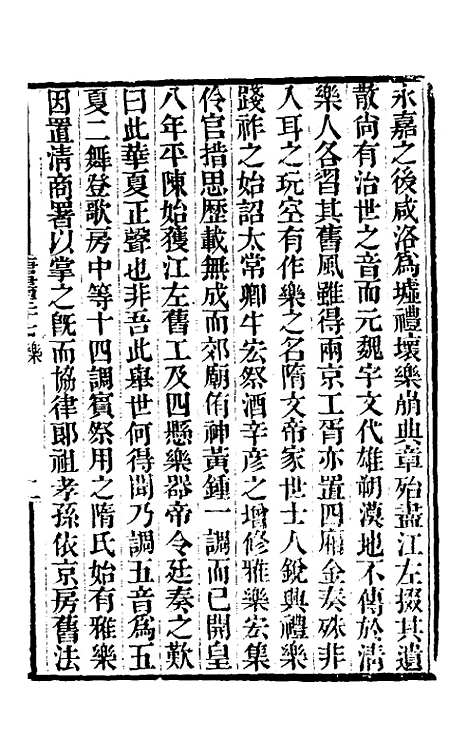 永嘉之後咸洛為墟禮壞樂崩典章殆盡江左掇其遺
散尚有治世之音而元魏宇文代雄朔漠地不傳於清
樂人各習其舊風雖得兩京工胥亦置四廂金奏殊非
入耳之玩空有作樂之名隋文帝家世士人銳興禮樂
踐祚之始詔太常卿牛宏祭酒辛彥之增修雅樂宏集
伶官措思歷載無成而郊廟侑神黃鍾一調而已開皇
八年平陳始獲江左舊工及四懸樂器帝令廷奏之歎
曰此華夏正聲也非吾此舉世何得聞乃調五音為五
夏二舞登歌房中等十四調賓祭用之隋氏始有雅樂
因置清商署以掌之既而協律郎祖孝孫依京房舊法
樂